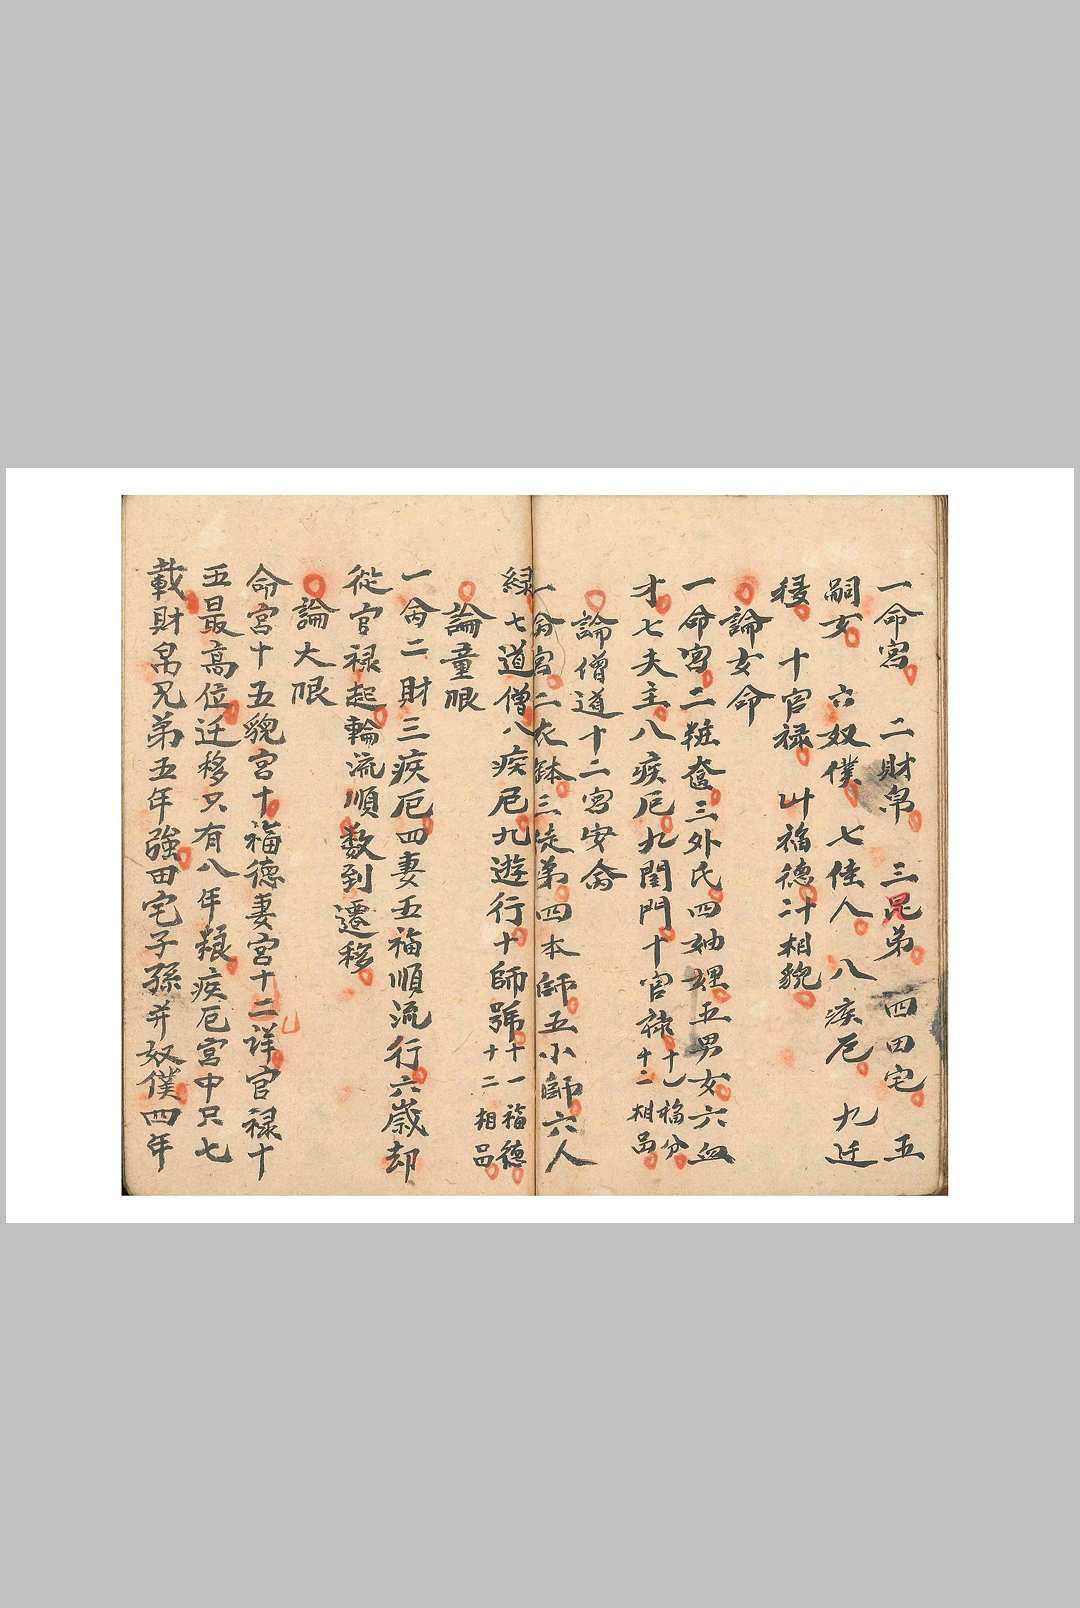 一命宮 二財帛 三昆弟 四田宅 五
嗣女 六奴僕 七佳人 八疾厄 九迁
移 十官禄 十一福德 十二相貌
論女命
一命宮二粧奩三外氏四妯娌五男女六血
才七夫主八疾厄九閨門十官禄十一福分
十二相品
論僧道十二宮安命
一命宮二衣鉢三徒弟四本師五小師六人
緣七道僧八疾厄九遊行十師號十一福德
十二相品
論童限
一命二財三疾厄四妻五福順流行六歲却
從官禄起輪流順数到遷移
論大限
命宮十五貌宮十福德妻宮十二详官禄十
五最高位迁移只有八年粮疾厄宮中只七
載財帛兄弟五年強田宅子孫并奴僕四年